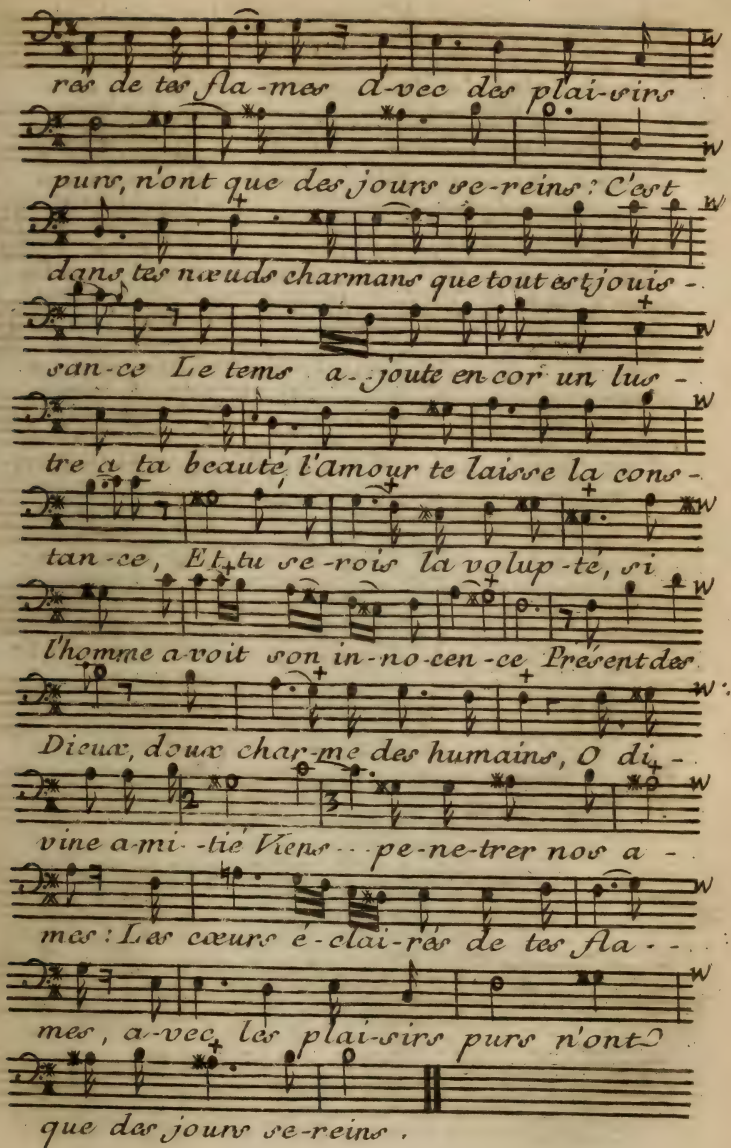 rés de tes fla-mes A-vec des plai-sirs
purs, n'ont que des jours se-reins: C'est
dans tes nœuds charmans que tout est jouis -
san-ce Le tems a-joute en-cor un lus -
tre a ta beauté, l'amour te laisse la cons -
tan-ce, Et tu se-rois la volup-té, si
l'homme a-voit son in-no-cen-ce Présent des
Dieux, doux char-me des humains, O di -
2 3
vine a-mi-tié Viens ... pe-ne-trer nos a -
mes: Les cœurs é-clai-rés de tes fla - -
mes, a-vec les plai-sirs purs n'ont
que des jours se-reins.